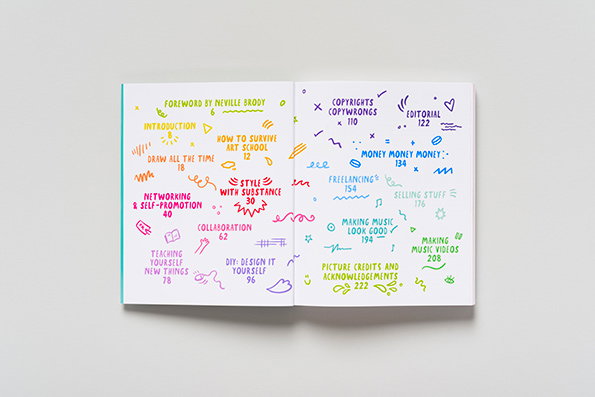 FOREWORD BY NEVILLE BRODY
6
INTRODUCTION
8
HOW TO SURVIVE
ART SCHOOL
12
DRAW ALL THE TIME
18
STYLE
WITH SUBSTANCE
30
NETWORKING
& SELF-PROMOTION
40
COLLABORATION
62
TEACHING
YOURSELF
NEW THINGS
78
DIY: DESIGN IT
YOURSELF
96
COPYRIGHTS
COPYWRONGS
110
EDITORIAL
122
MONEY MONEY MONEY
134
FREELANCING
154
SELLING STUFF
176
MAKING MUSIC
LOOK GOOD
194
MAKING
MUSIC VIDEOS
208
PICTURE CREDITS AND
ACKNOWLEDGEMENTS
222